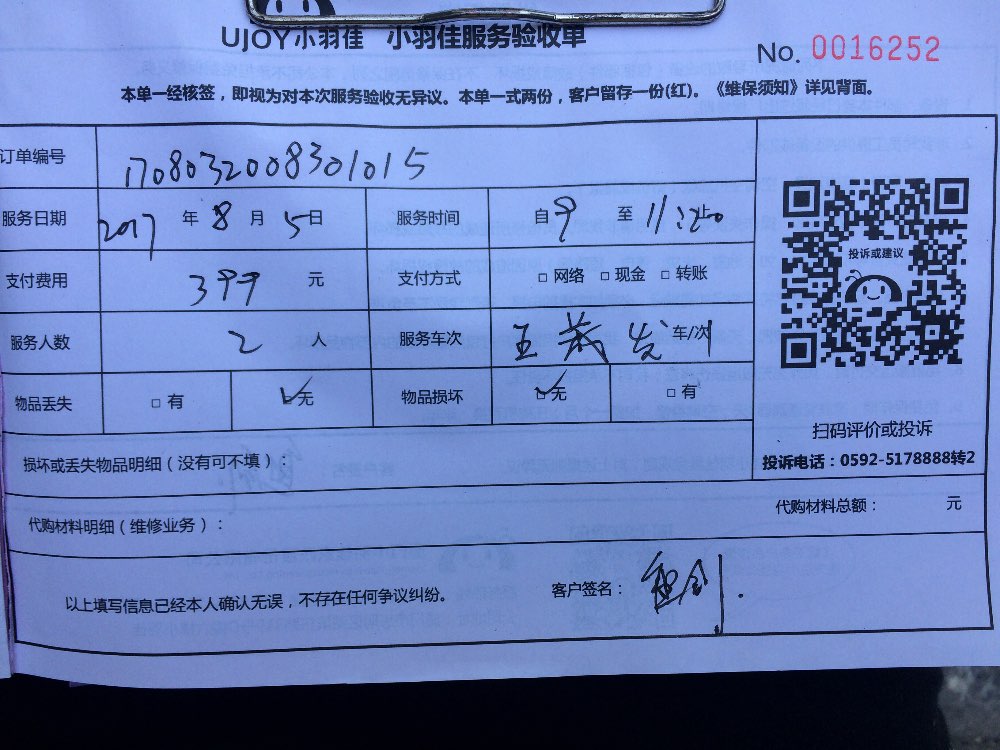 UJOY小羽佳 小羽佳服务验收单
No. 0016252
本单一经核签，即视为对本次服务验收无异议。本单一式两份，客户留存一份(红)。《维保须知》详见背面。
订单编号 1708032008301015
服务日期 2017 年 8 月 5 日 服务时间 自 9 至 11:20 止
支付费用 399 元 支付方式 □ 网络 □ 现金 □ 转账
服务人数 2 人 服务车次 王 发 车/次
物品丢失 □ 有 ☑ 无 物品损坏 ☑ 无 □ 有
投诉或建议
扫码评价或投诉
投诉电话：0592-5178888转2
损坏或丢失物品明细（没有可不填）
代购材料明细（维修业务）： 代购材料总额： 元
以上填写信息已经本人确认无误，不存在任何争议纠纷。 客户签名：